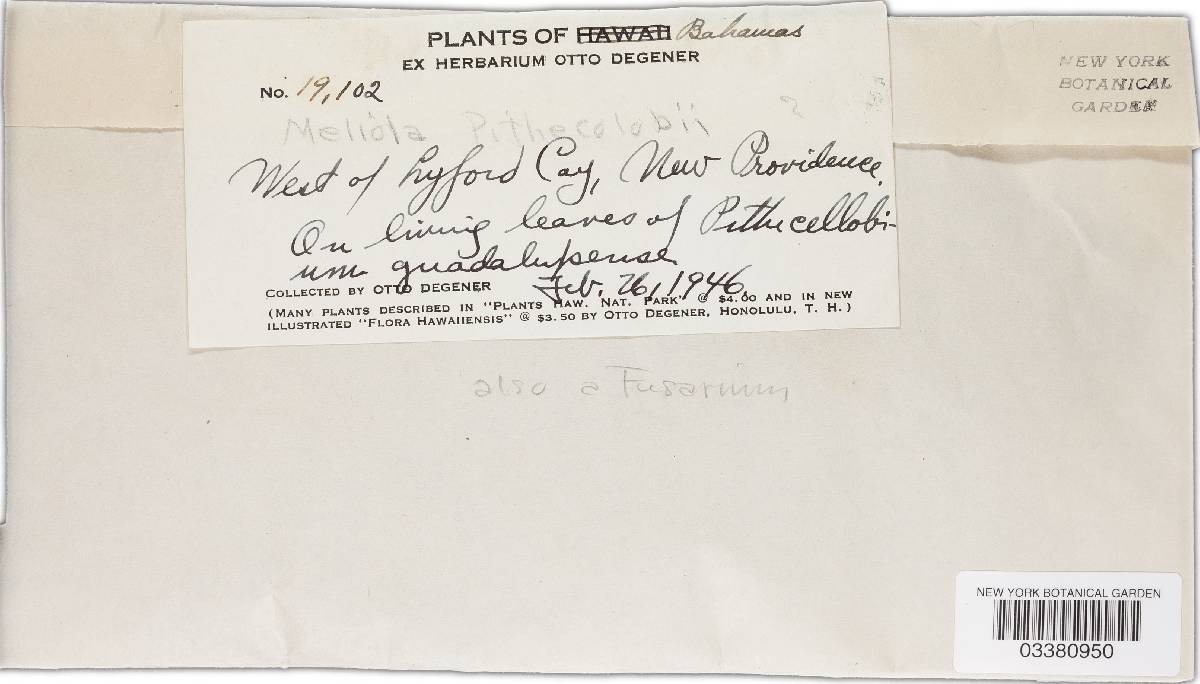 PLANTS OF HAWAII Bahamas
EX HERBARIUM OTTO DEGENER
No. 19,102
Meliola Pithecolobii ?
West of Lyford Cay, New Providence.
On living leaves of Pithecellobi-
um guadalupense
COLLECTED BY OTTO DEGENER Feb. 26, 1946.
(MANY PLANTS DESCRIBED IN "PLANTS HAW. NAT. PARK" @ $4.00 AND IN NEW
ILLUSTRATED "FLORA HAWAIIENSIS" @ $3.50 BY OTTO DEGENER, HONOLULU, T. H.)
NEW YORK
BOTANICAL
GARDEN
also a Fusarium
NEW YORK BOTANICAL GARDEN
03380950